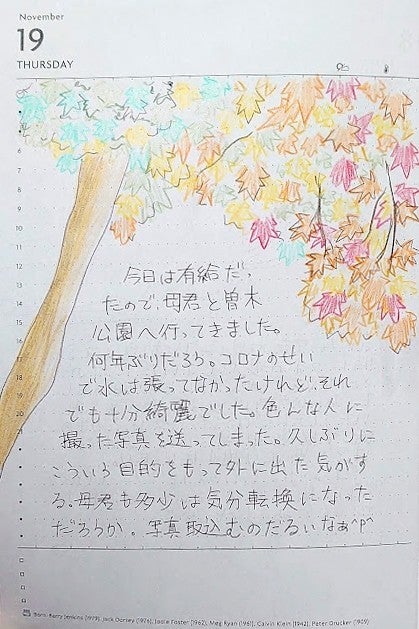 November
19
THURSDAY
5
6
7
8
9
10
11
12
13
14
15
16
17
18
19
20
21
今日は有給だっ
たので、母君と曽木
公園へ行ってきました。
何年ぶりだろう。コロナのせい
で水は張ってなかったけれど、それ
でも十分綺麗でした。色んな人に
撮った写真を送ってしまった。久しぶりに
こういう目的をもって外に出た気がす
る。母君も多少は気分転換になった
だろうか。写真取込むのだるいなぁ^P^
Born: Barry Jenkins (1979), Jack Dorsey (1976), Jodie Foster (1962), Meg Ryan (1961), Calvin Klein (1942), Peter Drucker (1909)